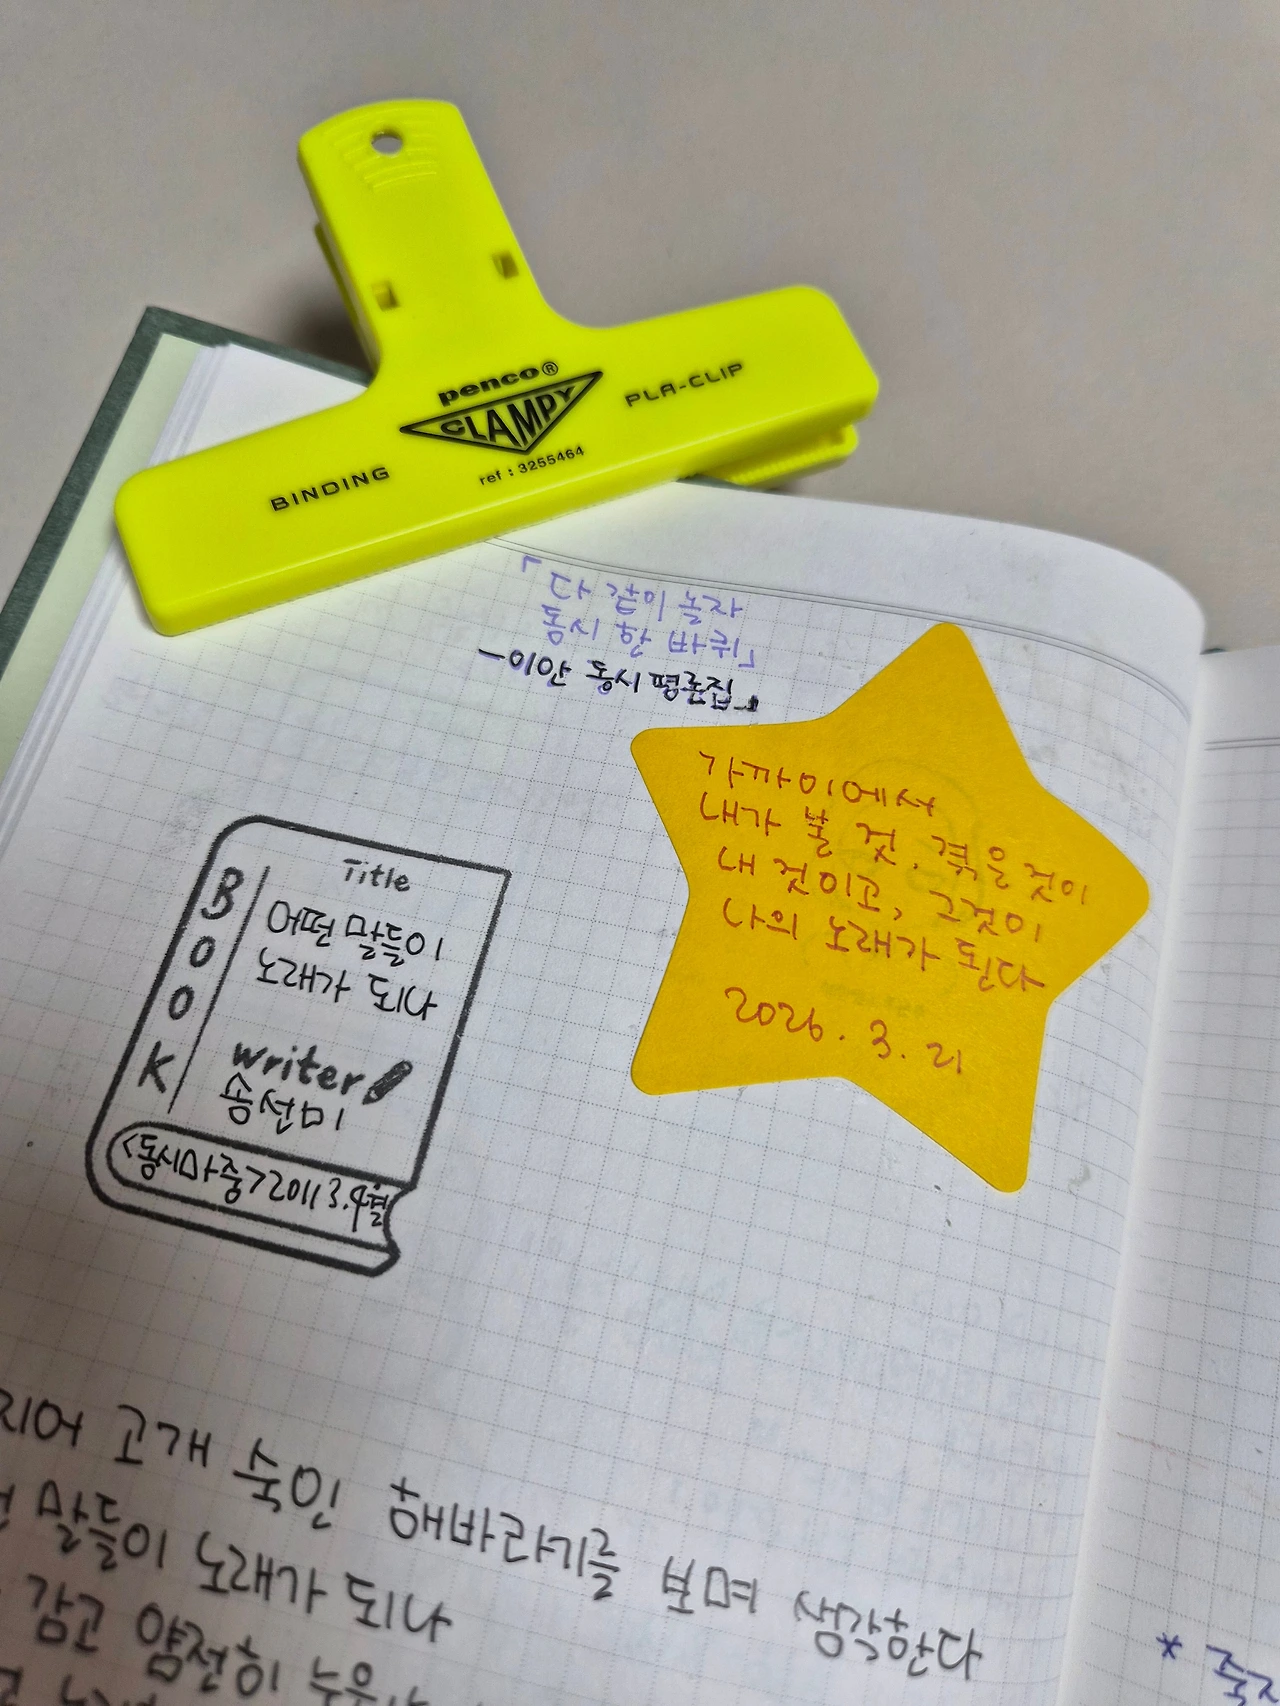 penco®
CLAMPY
BINDING
PLA-CLIP
ref : 3255464
「다 같이 놀자
동시 한 바퀴」
-이안 동시 평론집-
가까이에서
내가 본 것, 겪은 것이
내 것이고, 그것이
나의 노래가 된다
2026. 3. 21
BOOK
Title
어떤 말들이
노래가 되나
writer
송선미
<동시마중> 2011 3.4월
고개 숙인 해바라기를 보며 생각한다
말들이 노래가 되나
감고 얌전히
*